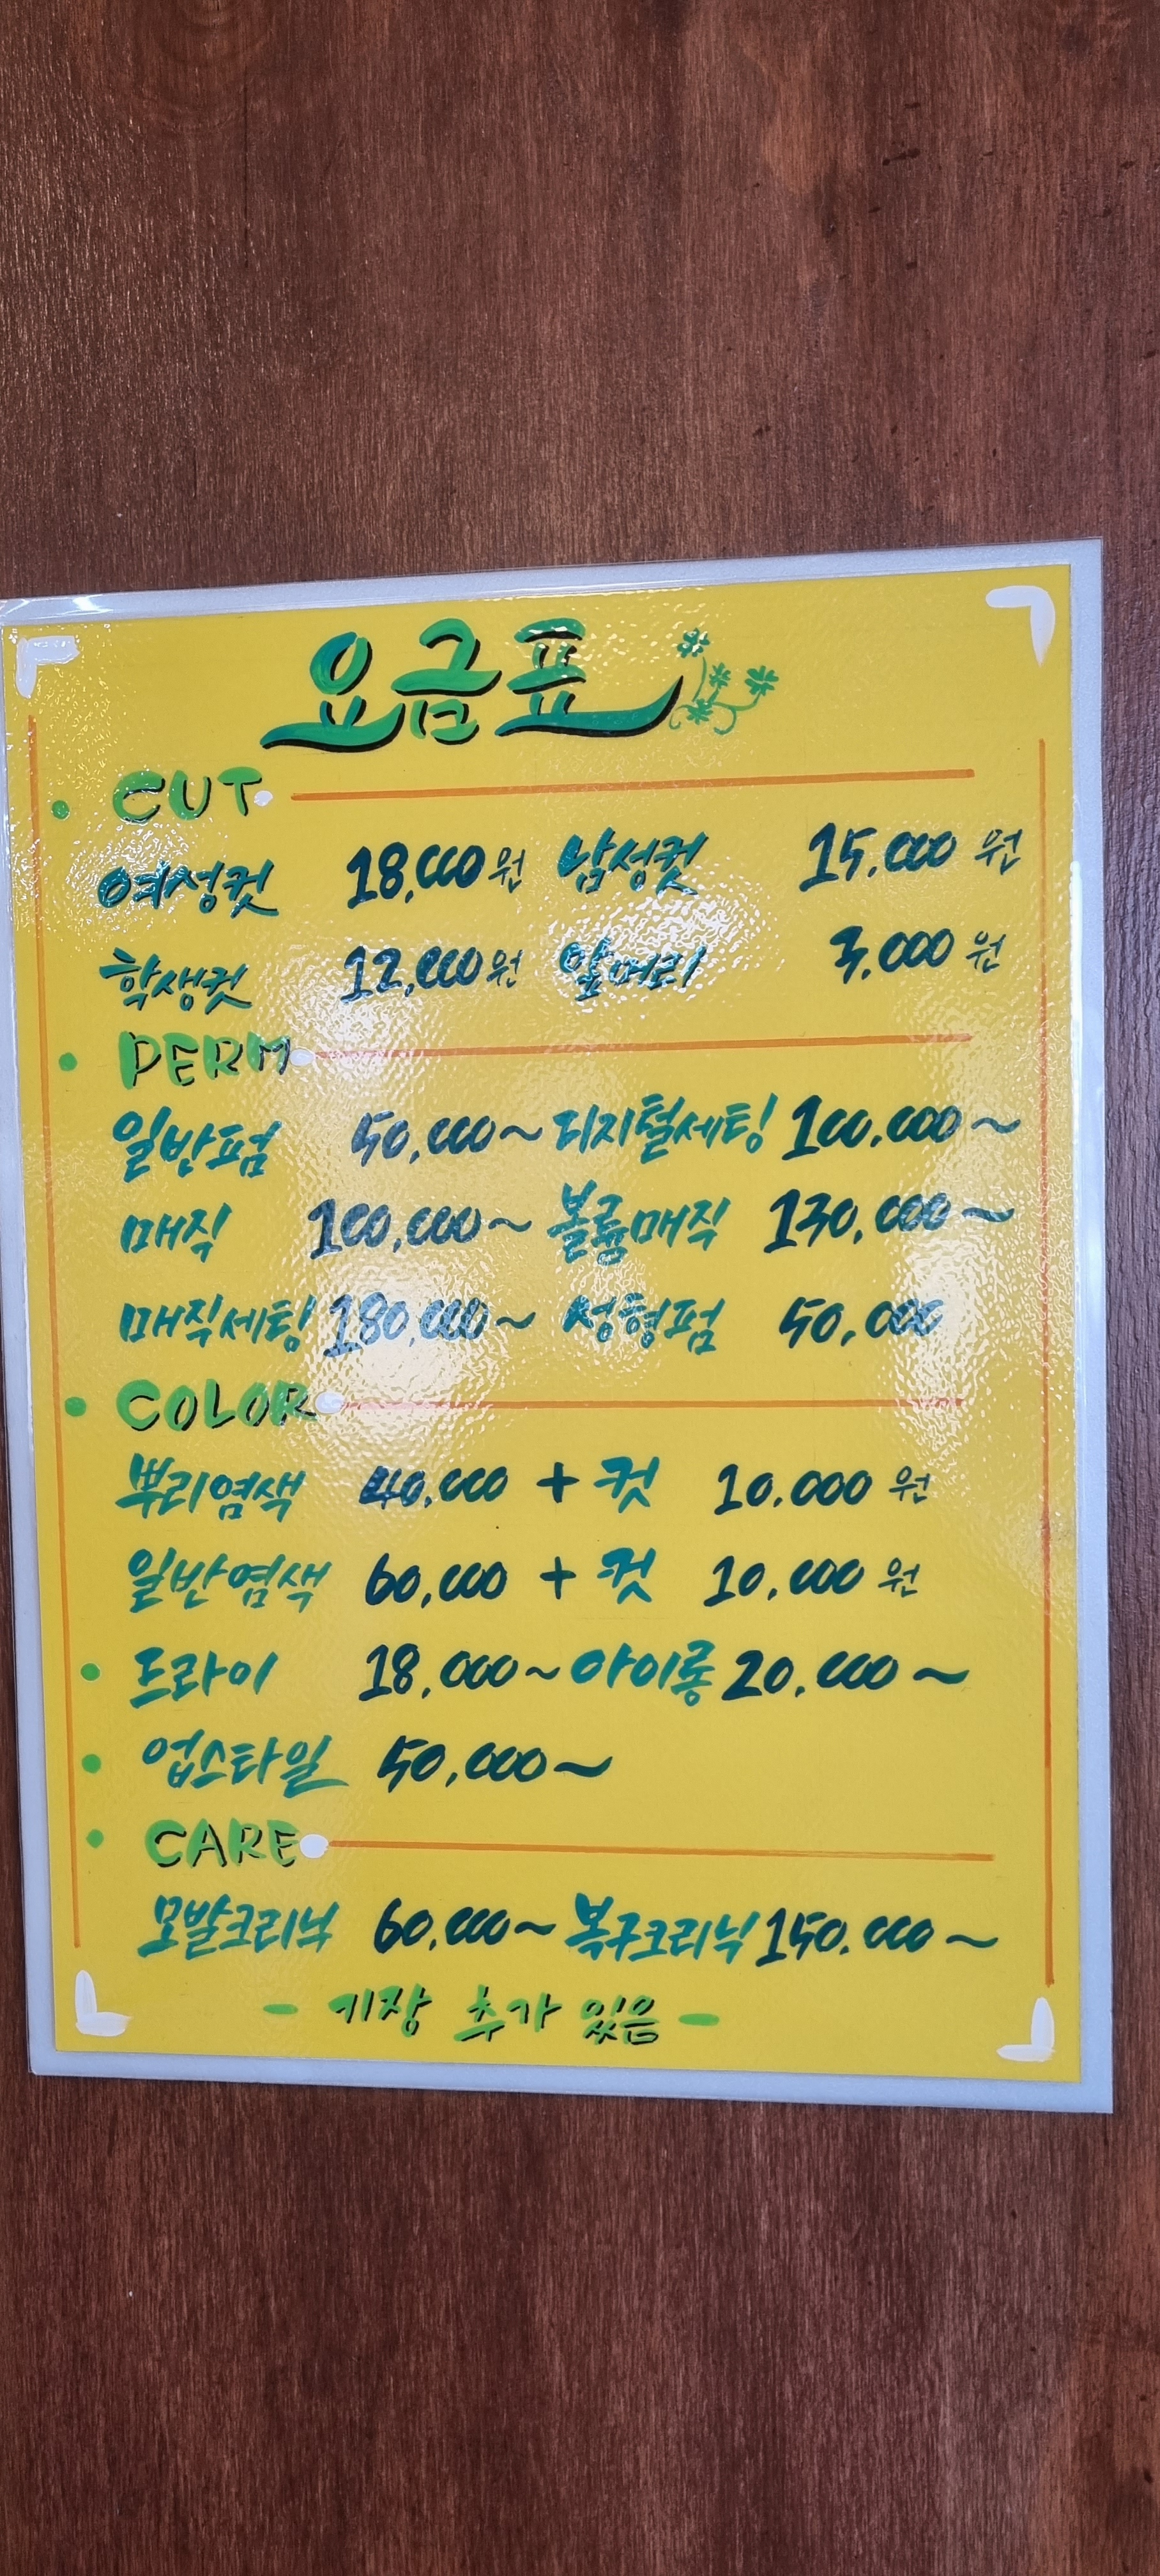 요금표
CUT
여성컷 18,000원 남성컷 15,000원
학생컷 12,000원 앞머리 3,000원
PERM
일반펌 50,000~ 디지털세팅 100,000~
매직 100,000~ 볼륨매직 130,000~
매직세팅 180,000~ 성형펌 50,000
COLOR
뿌리염색 40,000 + 컷 10,000원
일반염색 60,000 + 컷 10,000원
드라이 18,000~ 아이롱 20,000~
업스타일 50,000~
CARE
모발크리닉 60,000~ 복구크리닉 150,000~
- 기장 추가 있음 -